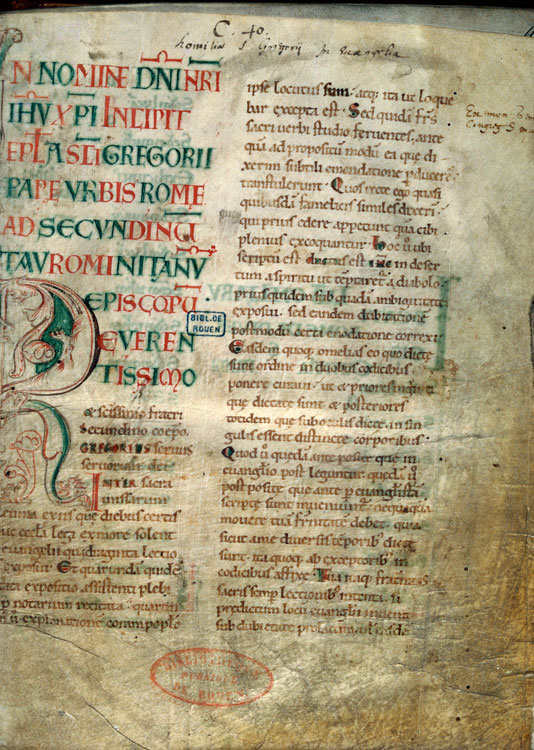 C. 40.
Homiliæ S. Gregorii in Evangelia
IN NOMINE DNI NRI
IHU XPI INCIPIT
EPLA SCI GREGORII
PAPE URBIS ROME
AD SECUNDINU
TAUROMINITANU
EPISCOPU
REVEREN
TISSIMO
& scissimo fratri
Secundino coepo.
GREGORIUS servus
servorum dei
INTER sacra
missarum
ex his que diebus certis
eccla legi ex more solent
evangelii quadraginta lectio
exposui. Et quarunda quide
expositio assistenti plebi
p notarium recitata. quarun
explanatione coram poplo
ipse locutus sum. atq; ita ut loque
bar excepta est. Sed quida frs
sacri verbi studio ferventes. ante
qua ad propositum modu ea que di
xeram subtili emendatione pducere
transtulerunt. Quos recte ego quasi
quibusda famelicis similes dixeri.
qui prius edere appetunt qua cibi
plenius excoquantur. Hoc u ubi
scriptu est ductus est ihc in deser
tum a spiritu ut temptaretur a diabolo.
prius quidem sub quada ambiguitate
exposui. sed eandem dubitatione
postmodu certa enodatione correxi.
Easdem quoq; omelias eo quo dicte
sunt ordine in duobus codicibus
ponere curavi. ut & priores viginti
que dictate sunt & posteriores
totidem que sub oculis dicte. in sin
gulis essent distincte corporibus.
Quod u queda ante posite que in
evanglio post leguntur. queda u
postposite que ante p evanglista
scripte sunt inveniuntur. nequaqua
movere tua frnitate debet. quia
sicut a me diversis temporib; dicte
sunt. ita quoq; ab exceptorib; in
codicibus affixe. Tua itaq; fraternitas
sacris semp lectionib; intenta si
predictum locu evanglii invenit
sub dubietate prolatum
BIBL. DE
ROUEN
BIBLIOTHEQUE
PUBLIQUE
DE ROUEN